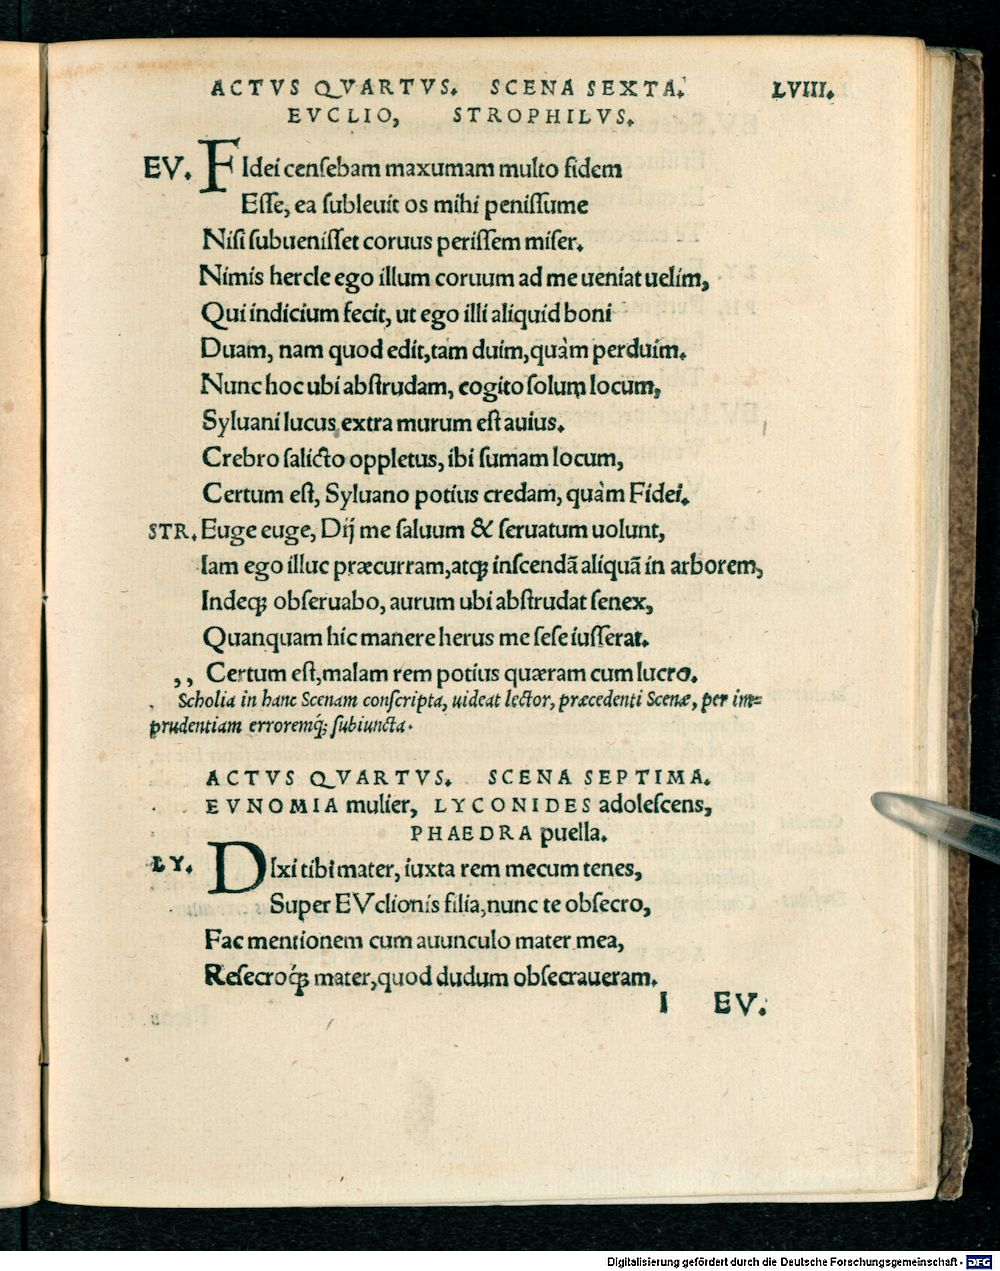 ACTVS QVARTVS. SCENA SEXTA. LVIII.
EVCLIO, STROPHILVS.
EV. FIdei cenſebam maxumam multo fidem
Eſſe, ea ſubleuit os mihi peniſſume
Niſi ſubueniſſet coruus periſſem miſer.
Nimis hercle ego illum coruum ad me ueniat uelim,
Qui indicium fecit, ut ego illi aliquid boni
Duam, nam quod edit, tam duim, quàm perduim.
Nunc hoc ubi abſtrudam, cogito ſolum locum,
Syluani lucus extra murum eſt auius.
Crebro ſalicto oppletus, ibi ſumam locum,
Certum eſt, Syluano potius credam, quàm Fidei.
STR. Euge euge, Dij me ſaluum & ſeruatum uolunt,
Iam ego illuc præcurram, atqꝫ inſcendã aliquã in arborem,
Indeqꝫ obſeruabo, aurum ubi abſtrudat ſenex,
Quanquam hic manere herus me ſeſe iuſſerat.
,, Certum eſt, malam rem potius quæram cum lucro.
Scholia in hanc Scenam conſcripta, uideat lector, præcedenti Scenæ, per im=
prudentiam erroremq́ꝫ ſubiuncta.
ACTVS QVARTVS. SCENA SEPTIMA.
EVNOMIA mulier, LYCONIDES adoleſcens,
PHAEDRA puella.
LY. DIxi tibi mater, iuxta rem mecum tenes,
Super EVclionis filia, nunc te obſecro,
Fac mentionem cum auunculo mater mea,
Reſecroq́ꝫ mater, quod dudum obſecraueram.
I EV.
Digitalisierung gefördert durch die Deutsche Forschungsgemeinschaft - DFG